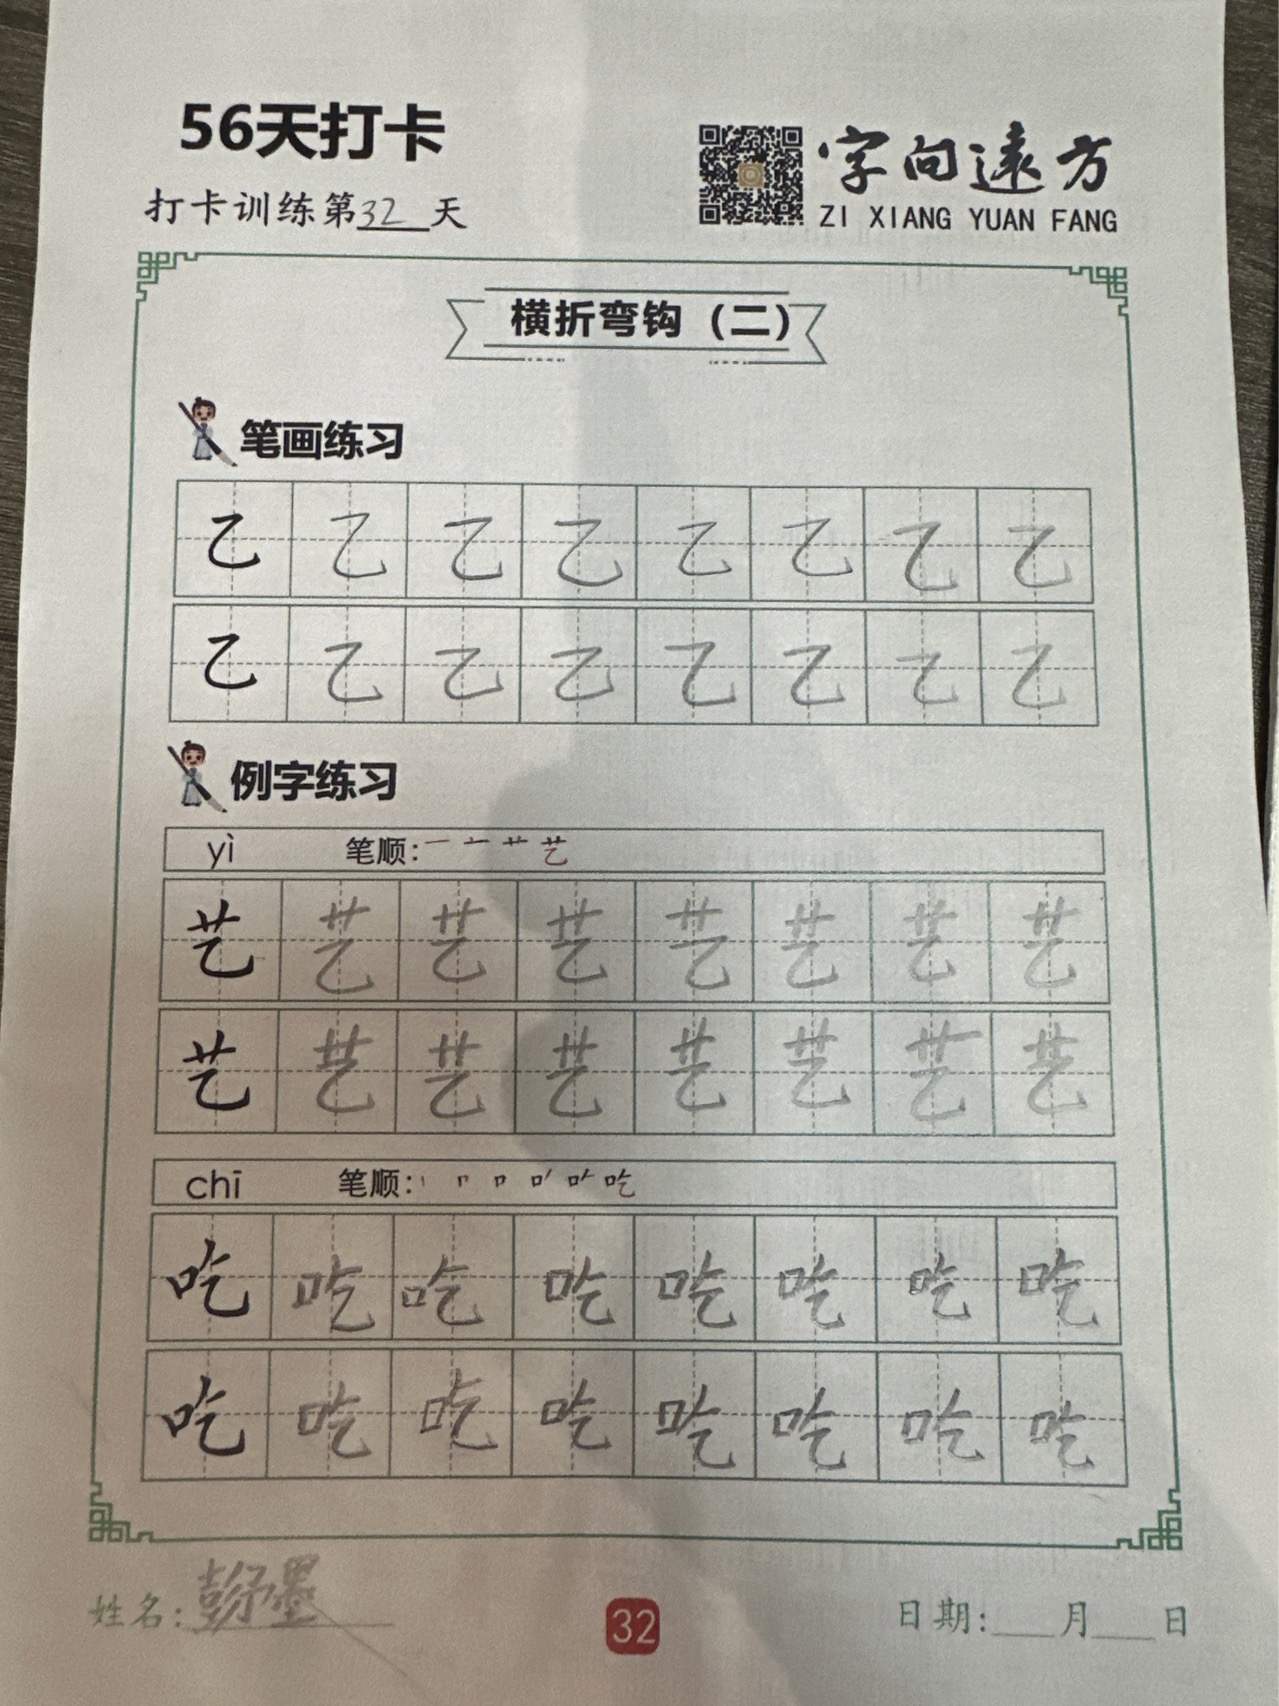 56天打卡
字向遠方
打卡训练第32天
ZI XIANG YUAN FANG
横折弯钩（二）
笔画练习
乙 乙 乙 乙 乙 乙 乙 乙
乙 乙 乙 乙 乙 乙 乙 乙
例字练习
yì 笔顺：一 艹 艺
艺 艺 艺 艺 艺 艺 艺 艺
艺 艺 艺 艺 艺 艺 艺 艺
chī 笔顺：丨 口 吃
吃 吃 吃 吃 吃 吃 吃 吃
吃 吃 吃 吃 吃 吃 吃 吃
姓名：彭予墨
32
日期：___月___日